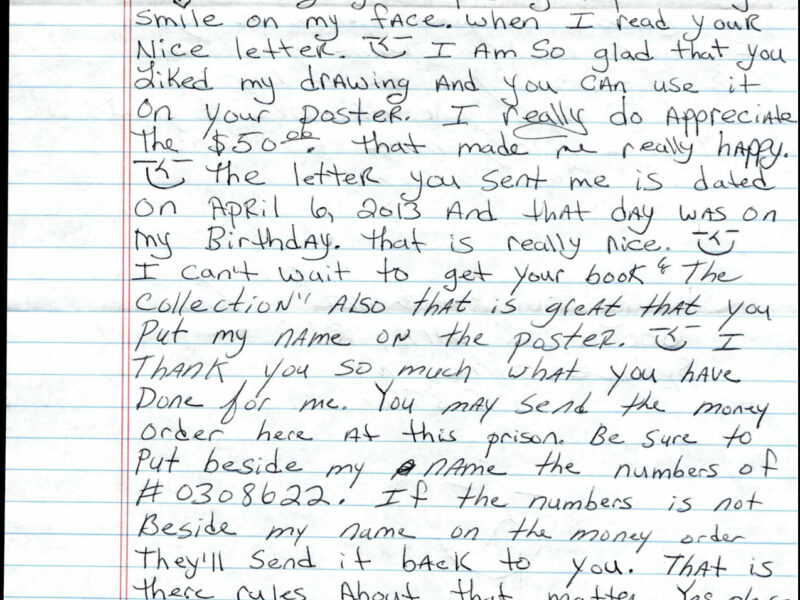 smile on my face. When I read your
Nice letter. I Am so glad that you
Liked my drawing And you can use it
on your poster. I really do Appreciate
the $50.00. that made me really happy.
the letter you sent me is dated
on April 6, 2013 And that day was on
my Birthday. that is really nice.
I can't wait to get your book "The
Collection" Also that is great that you
Put my name on the poster. I
Thank you so much what you have
Done for me. You may send the money
order here At this prison. Be sure to
Put beside my name the numbers of
#0308622. If the numbers is not
Beside my name on the money order
They'll send it back to you. That is
there rules About that matter. Yes please